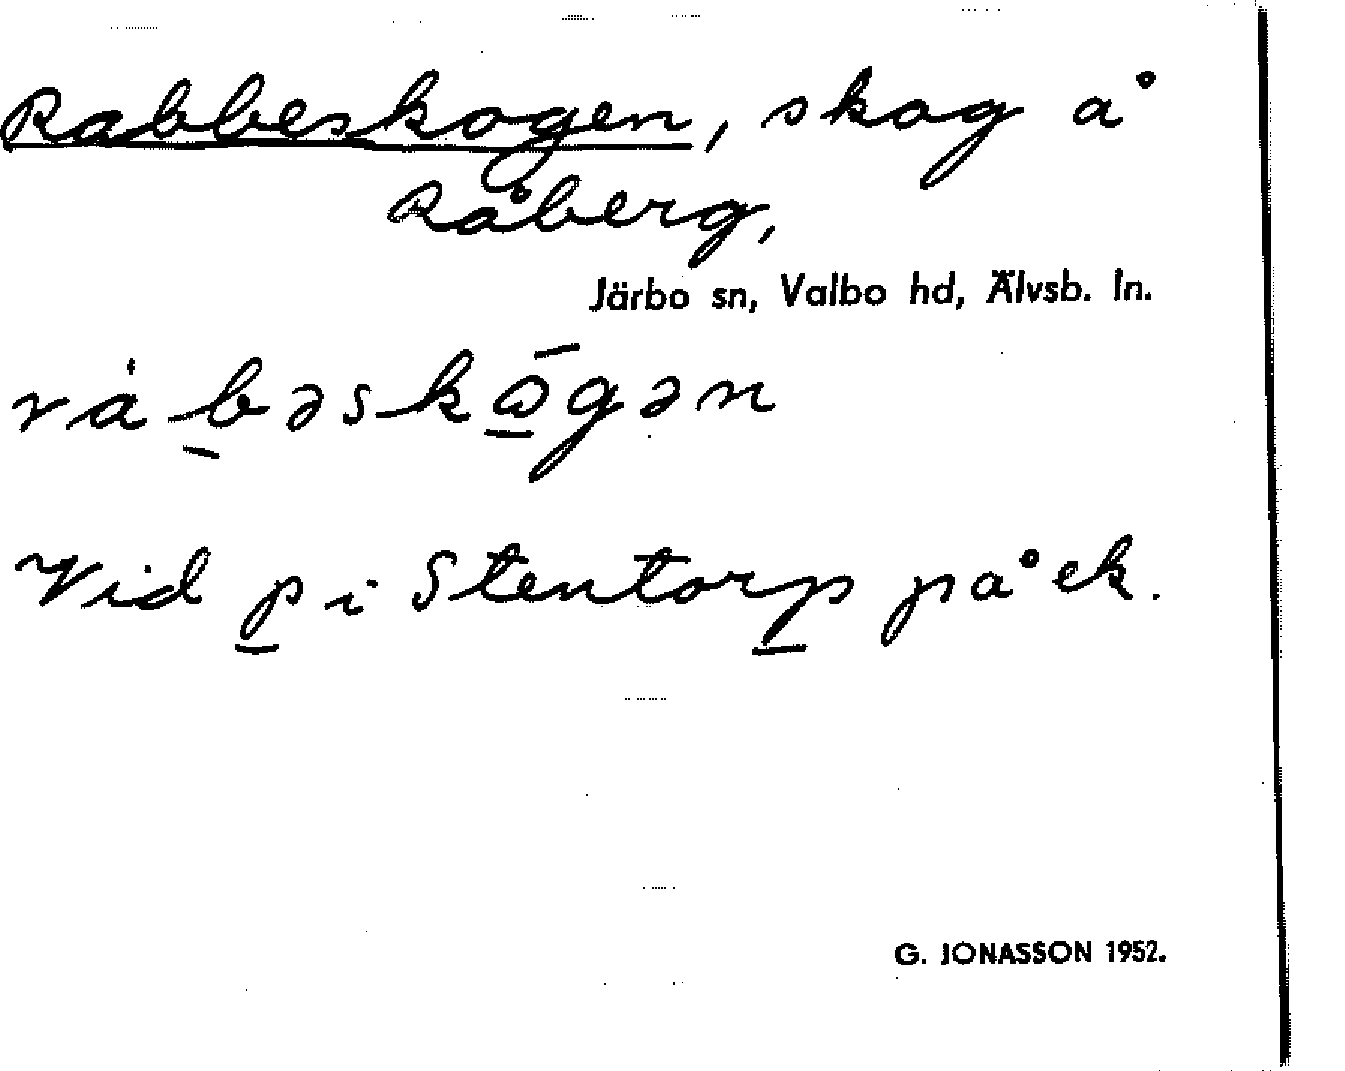 Rabbeskogen, skog å
Råberg,
Järbo sn, Valbo hd, Älvsb. ln.
Vid p i Stentorp på ek.
G. JONASSON 1952.